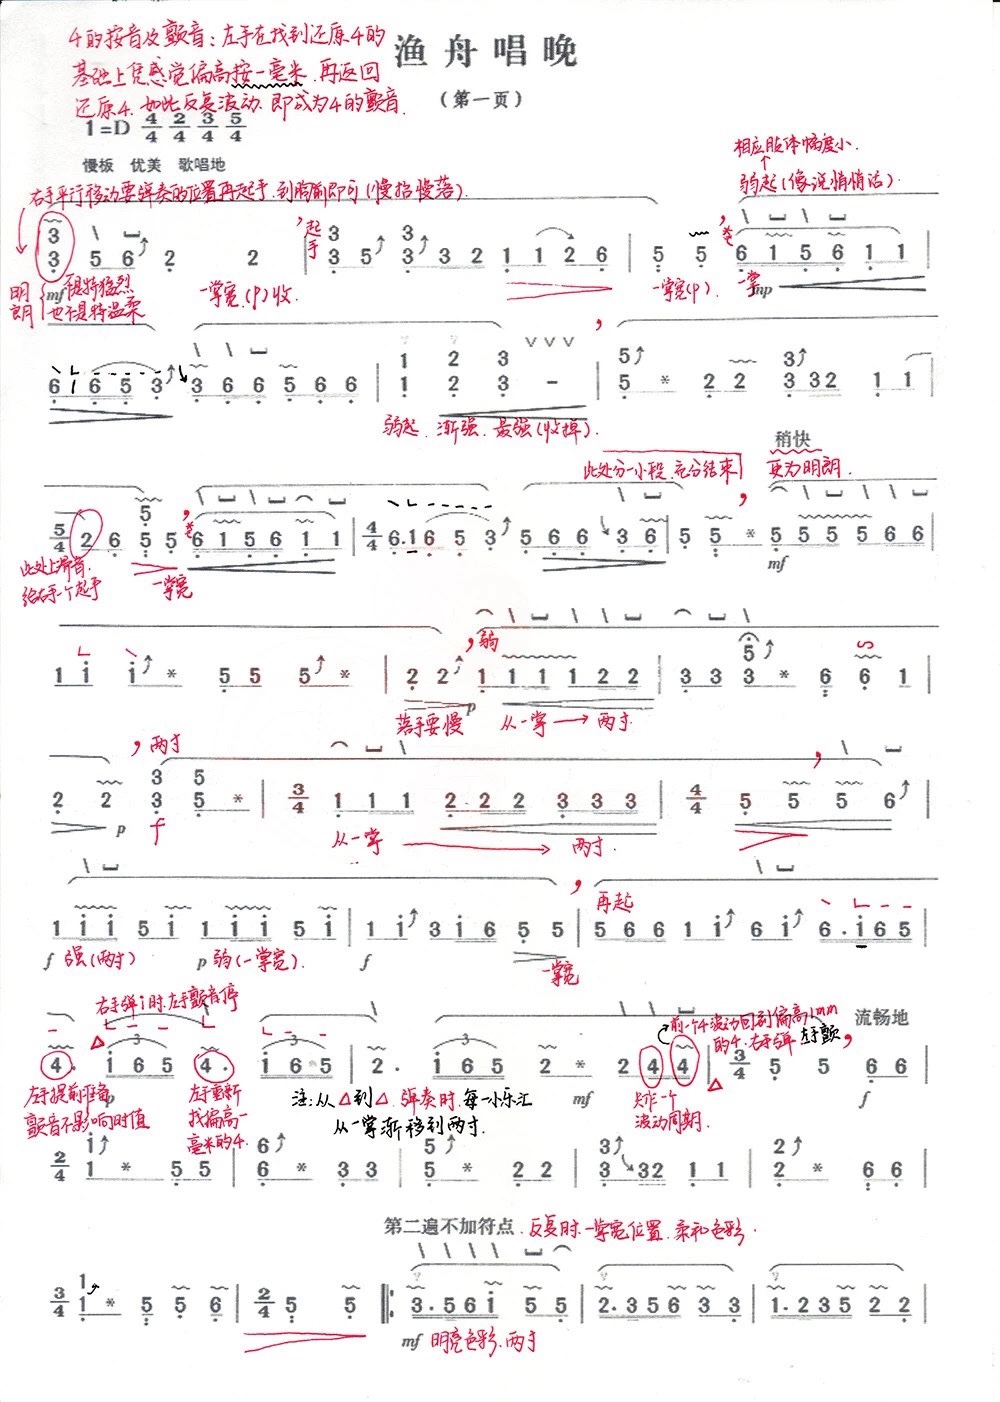 4的按音及颤音：左手在找到还原4的
基础上凭感觉偏高按一毫米，再返回
还原4，如此反复波动，即成为4的颤音.
渔舟唱晚
（第一页）
1=D 4/4 2/4 3/4 5/4
慢板 优美 歌唱地
右手平行移动要弹奏的位置再起手，到胸前即可(慢抬慢落).
相应肢体幅度小.
弱起(像说悄悄话).
起手
3 3 3
3 5 6 2 2 3 5 3 3 2 1 1 2 6 5 5 6 1 5 6 1 1
明朗
mf
不是特猛烈
也不是特温柔
一掌宽(p)收
一掌宽(p).
一掌
mp
1 2 3 5 3
6 1 6 5 3 3 6 6 5 6 6 1 2 3 – 5 * 2 2 3 32 1 1
弱起.渐强.最强(收掉).
稍快
此处分一小段.充分结束
更为明朗.
5
5/4 2 6 5 5 6 1 5 6 1 1 4/4 6.1 6 5 3 5 6 6 3 6 5 5 * 5 5 5 5 6 6
此处上滑音.
给右手一个起手
一掌宽
mf
弱
5
1 i i * 5 5 5 * 2 2 1 1 1 1 2 2 3 3 3 * 6 6 1
p
落手要慢
从一掌→两寸
两寸
3 5
2 2 3 5 * 3/4 1 1 1 2 2 2 3 3 3 4/4 5 5 5 6
p f
从一掌 → 两寸.
再起
1 i i 5 i 1 i i 5 i 1 i 3 i 6 5 5 5 6 6 1 i 6 i 6 . i 6 5
f 强(两寸)
p 弱(一掌宽).
f
一掌宽
右手弹i时.左手颤音停
前一个4波动回到偏高1mm
的4.右手弹 左手颤
流畅地
4. i 6 5 4. i 6 5 2. i 6 5 2 2 4 4 3/4 5 5 6 6
左手提前准备
颤音不影响时值
左手重新
找偏高一
毫米的4.
注：从△到△.弹奏时.每一小乐汇
从一掌渐移到两寸.
mf
只作一个
波动周期.
f
i 6 5 3 2
2/4 1 * 5 5 6 * 3 3 5 * 2 2 3 32 1 1 2 * 6 6
第二遍不加符点.反复时.一掌宽位置.柔和色彩.
1
3/4 1 * 5 5 6 2/4 5 5 3 . 5 6 i 5 5 2 . 3 5 6 3 3 1 . 2 3 5 2 2
mf 明亮色彩.两寸